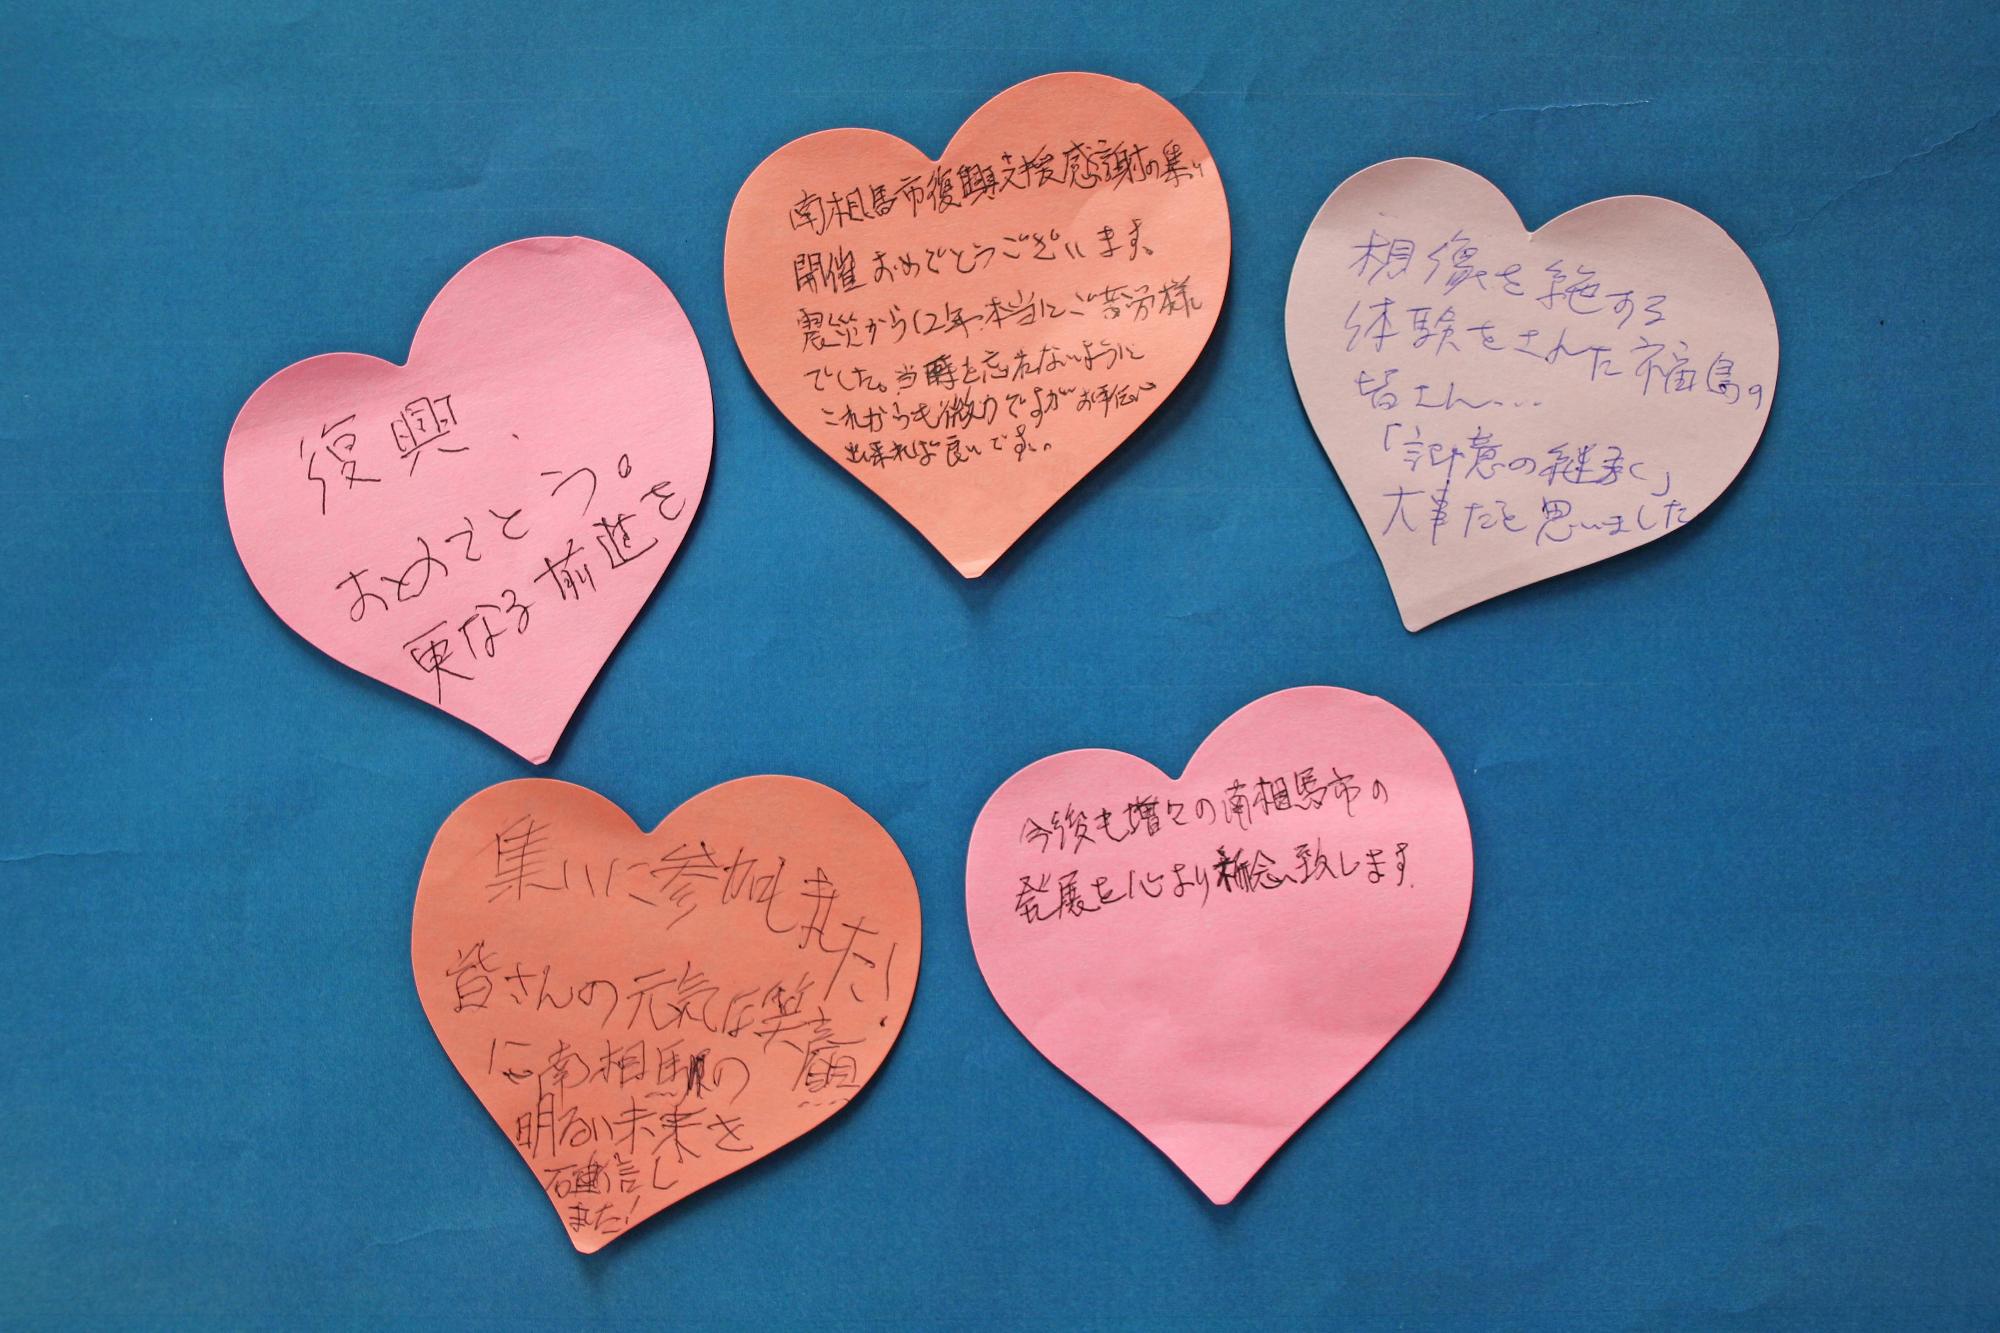 復興
おめでとう。
更なる前進を
南相馬市復興支援感謝の集い
開催おめでとうございます。
震災から12年本当にご苦労様
でした。当時を忘れないように
これからも微力ですがお手伝い
出来れば良いです。
想像を絶する
体験をされた福島の
皆さん…
「記憶の継承」
大事だと思いました
集いに参加しました!
皆さんの元気な笑顔
に南相馬の
明るい未来を
確信し
ました!
今後も増々の南相馬市の
発展を心より祈念致します